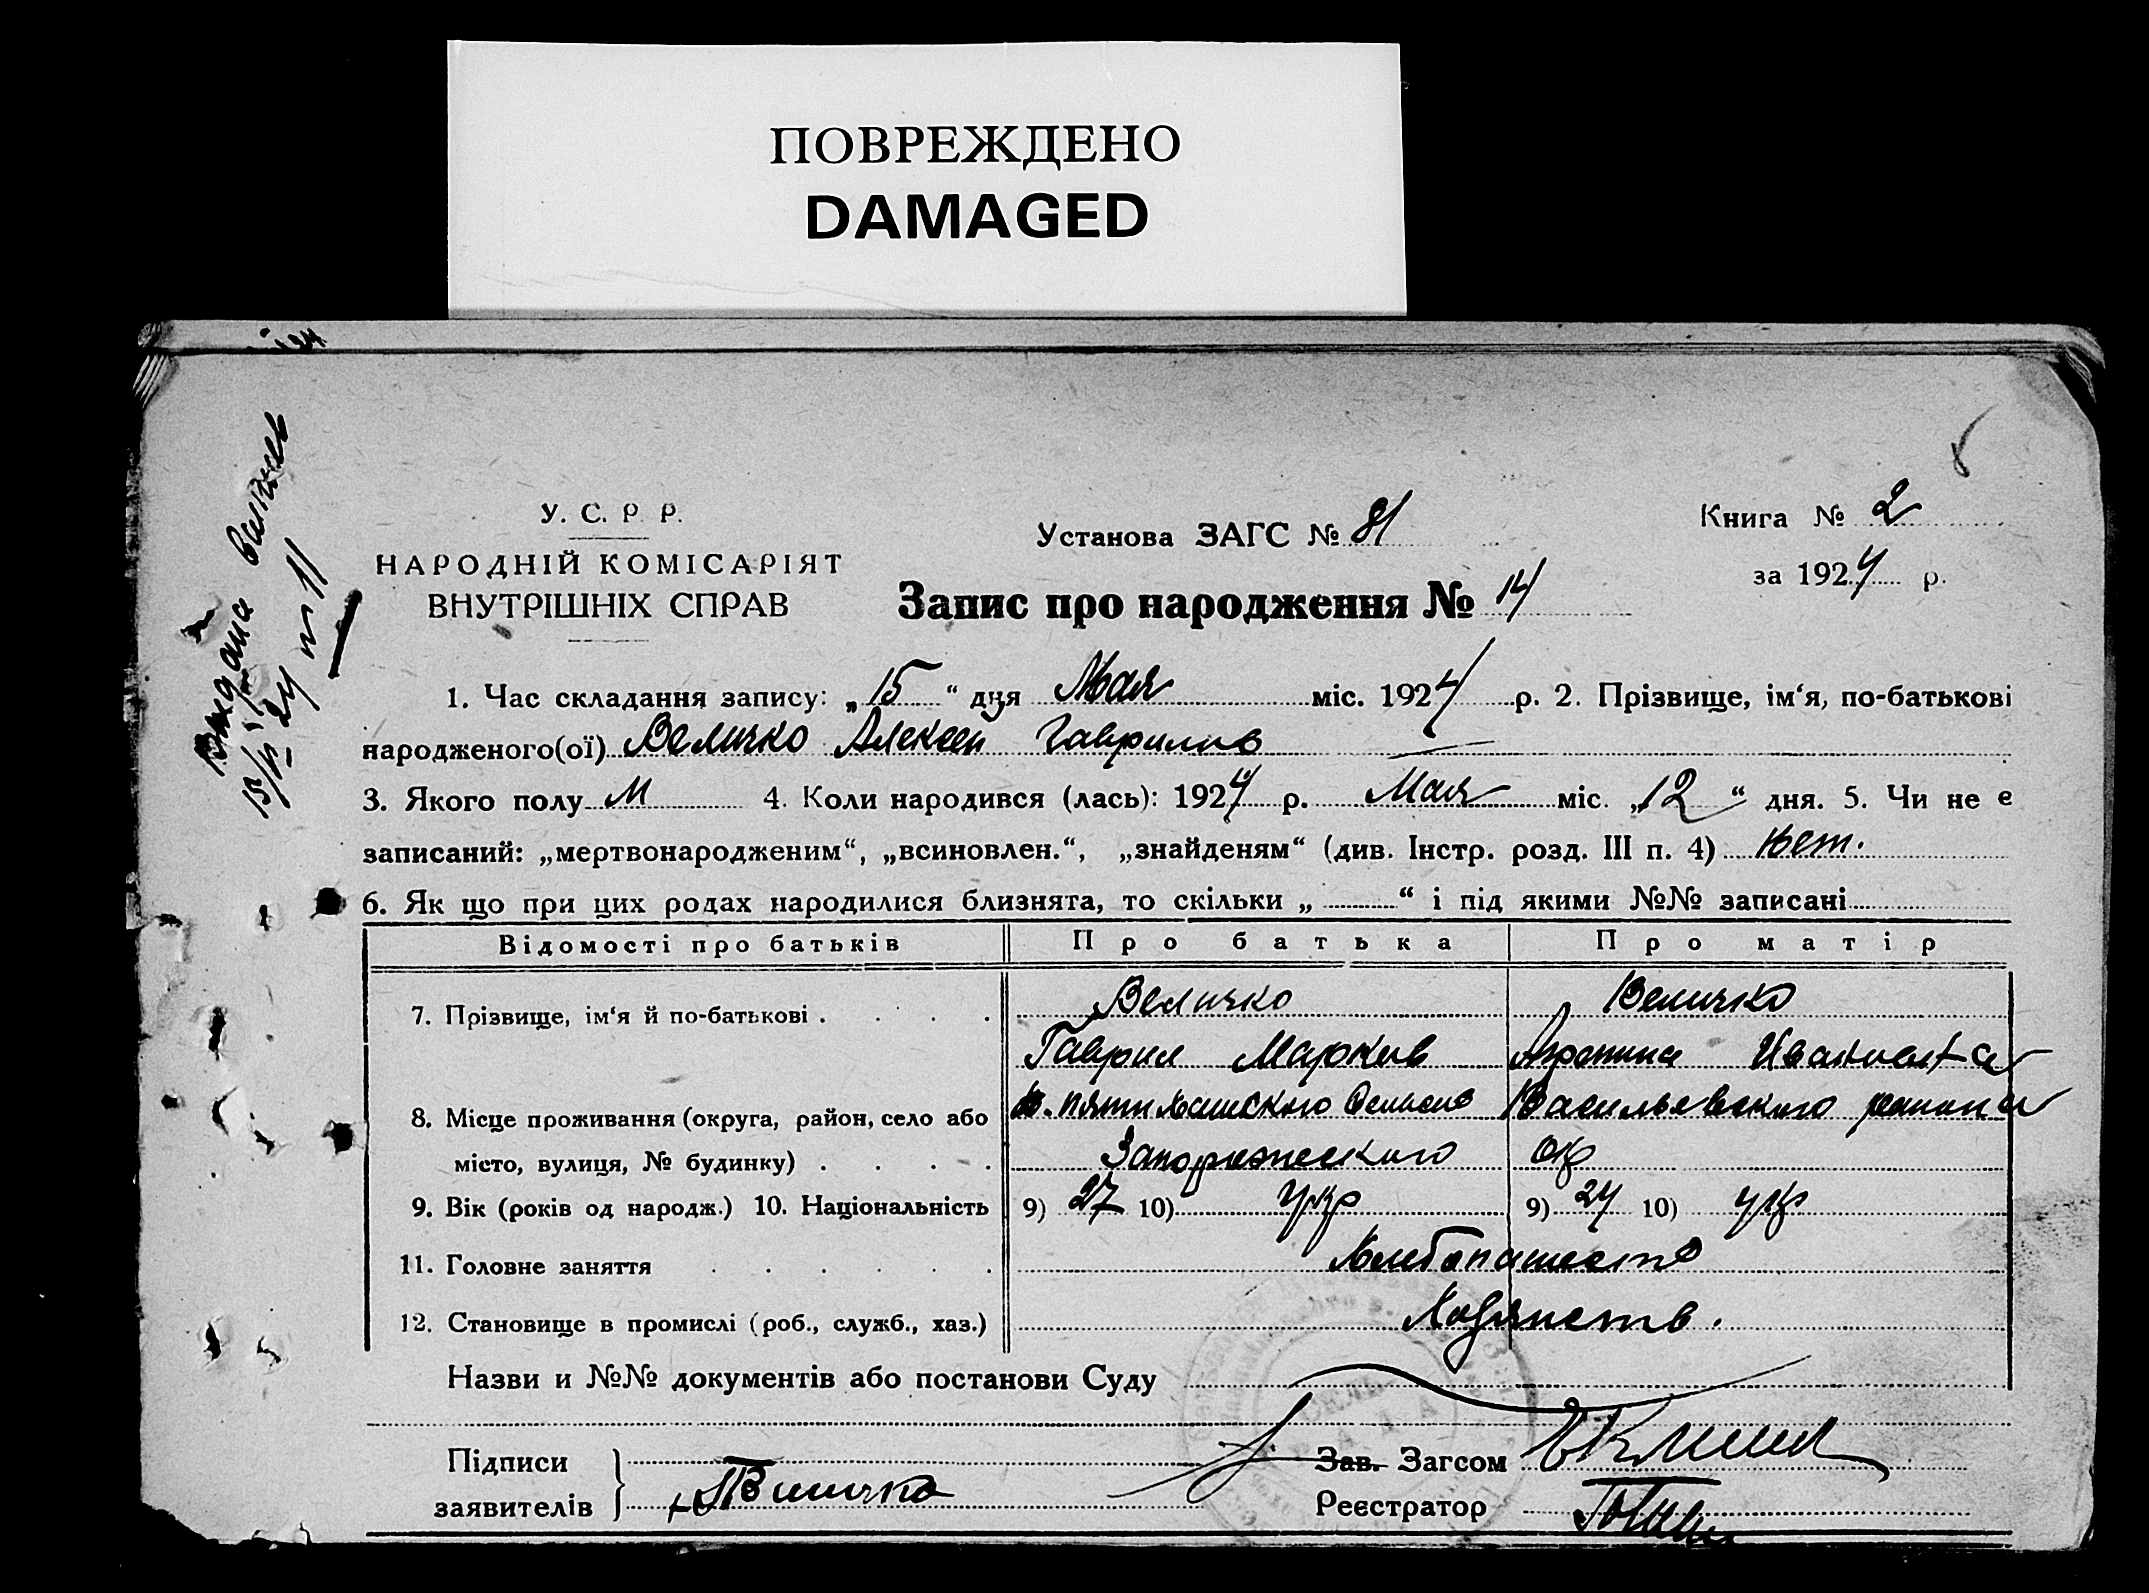 ПОВРЕЖДЕНО
DAMAGED
Выдана выпись
15/V 24 № 11
У. С. Р. Р.
НАРОДНІЙ КОМІСАРІЯТ
ВНУТРІШНІХ СПРАВ
Установа ЗАГС № 81
Запис про народження № 14
Книга № 2
за 1924 р.
1. Час складання запису: „15“ дня Мая міс. 1924 р. 2. Прізвище, ім‘я, по-батькові
народженого(ої) Величко Алексей Гаврилов
3. Якого полу М 4. Коли народився (лась): 1924 р. Мая міс. „12“ дня. 5. Чи не є
записаний: „мертвонародженим“, „всиновлен.“, „знайденям“ (див. Інстр. розд. III п. 4) Нет.
6. Як що при цих родах народилися близнята, то скільки „ “ і під якими №№ записані
Відомості про батьків Про батька Про матір
7. Прізвище, ім‘я й по-батькові . . . . Величко Величко
Гаврил Марков Ивановна
8. Місце проживання (округа, район, село або Васильевского района
місто, вулиця, № будинку) . . . . Запорожского окр
9. Вік (років од народж.) 10. Національність 9) 27 10) укр 9) 24 10) укр
11. Головне заняття . . . . . . Хлебопашество
12. Становище в промислі (роб., служб., хаз.) Хозяиств.
Назви и №№ документів або постанови Суду
Підписи
заявителів Величко
Зав. Загсом
Реєстратор